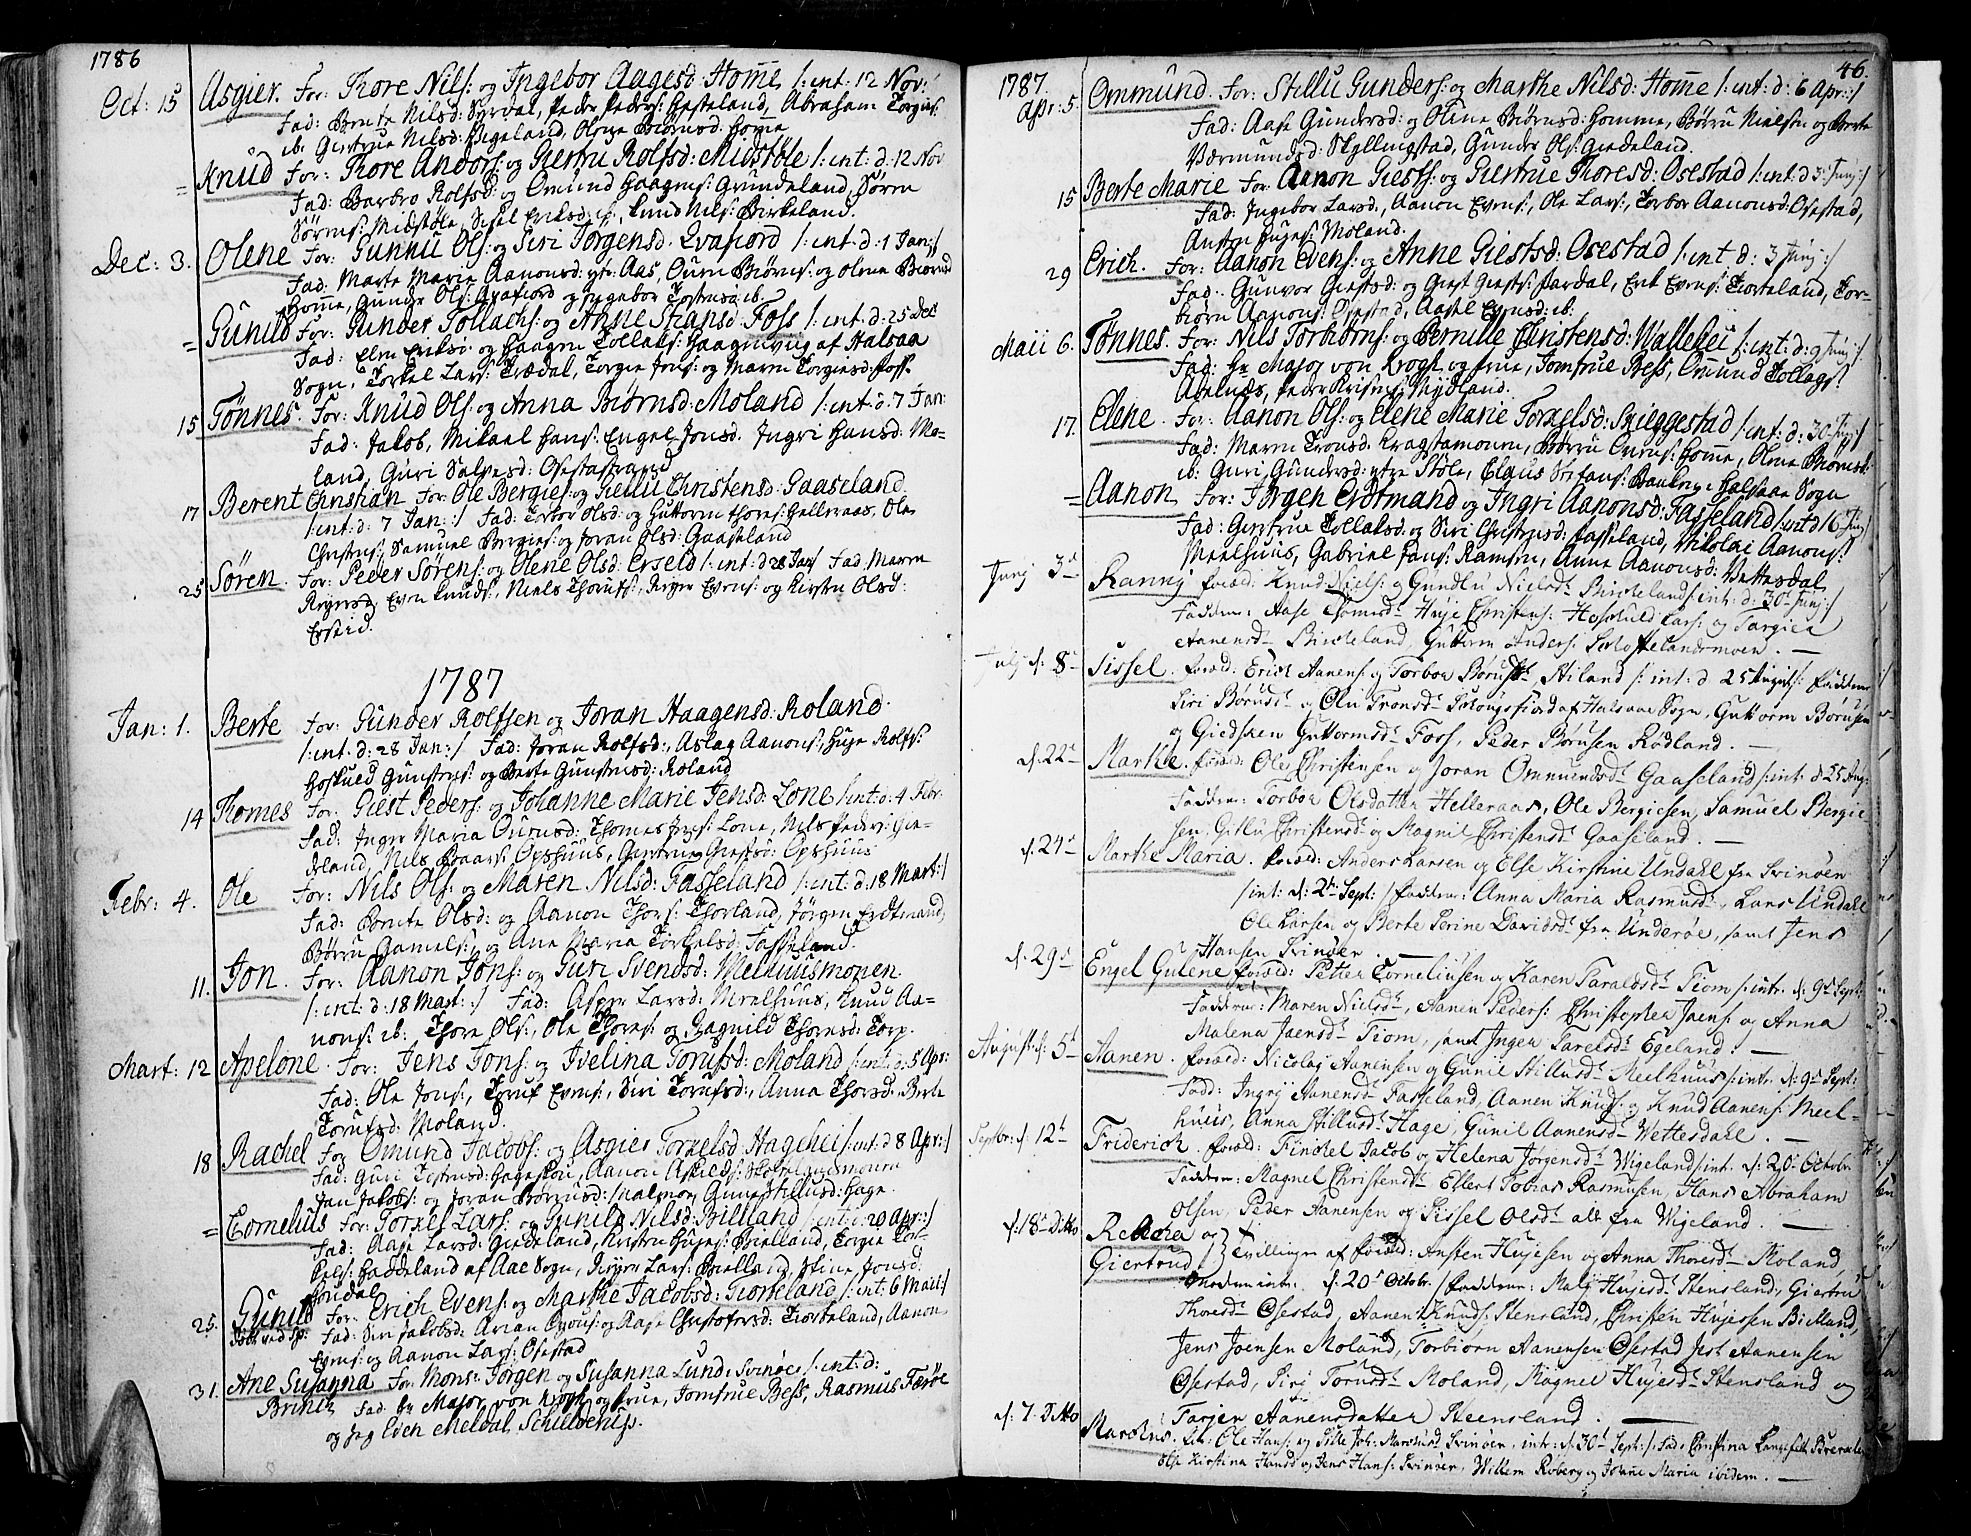 1786
Oct: 15 Asgier. For: Thore Nils: og Ingebor Aagesd: Home /: int: 12 Nov:
Fad: Berte Nilsd: Syrdal, Peder Peders: Hesteland, Abraham Torgius:
ib: Giertrue Nilsd: Eigeland, Olene Biørnsd: Home
= Knud For: Thore Andors: og Giertru Rolfsd: Midstøle /: int: d: 12 Nov
Fad: Barbro Rolfsd: og Omund Haagens: Grundeland, Søren
Sørens: Midstøle, Sisel Eriksd: ib, Knud Nils: Birkeland.
Dec: 3. Olene For: Gunnu Ols: og Siri Jørgensd: Qvafiord /: int: d: 1 Jan:/
Fad: Marte Marie Aanonsd: ytr: Aas, Ouen Biørns: og Olene Biørnsd
Home, Gunder Ols: Qvafiord og Ingebor Tostensd: ib.
= Gunild For: Gunder Tollachs: og Anne Stiansd: Foss /: int: d: 25 Dec
Fad: Elen Eriksd: og Haagen Tollaks: Haagenvig af Halsaa
Sogn, Torkel Lars: Trædal, Torgie Jons: og Maren Torgiesd: Foss.
15 Tønnes. For: Knud Ols: og Anna Biørnsd: Moland /: int: d: 7 Jan:
Fad: Jakob, Mikael Hans: Engel Jonsd: Ingri Hansd: Mo=
land, Guri Salvesd: Osestastrand
17 Berent Christian For: Ole Bergies: og Gietlu Christensd: Gaaseland
/: int: d: 7 Jan: / Fad: Torbor Olsd: og Guttorm Thores: Helleraas, Ole
Christens: Samuel Bergies: og Joran Olsd: Gaaseland
25 Søren. For: Peder Sørens: og Olene Olsd: Erseid /: int: d 28 Jan / Fad: Maren
Reyersd, Even Knuds:, Niels Thorufs:, Reyer Evens: og Kirsten Olsd:
Erseid.
1787
Jan: 1. Berte For: Gunder Rolfsen og Joran Haagensd: Roland
/: int: d: 28 Jan: / Fad: Joran Rolfsd:, Aslag Aanons:, Huje Rolfs:
Hoskued Gunstens: og Berte Gunstensd: Roland
14 Thomes For: Giest Peders: og Johanne Marie Jensd: Lone /: int: d: 4 Febr:
Fad: Inger Maria Ouensd: Thomes Jens: Lone, Nils Peders: Gie=
deland, Nils Opshuus, Giertrue Giestsd: Opshuus
Febr: 4. Ole For: Nils Ols: og Maren Nilsd: Fasseland /: int: d: 18 Mart: /
Fad: Berte Olsd: og Aanon Thors: Thorland, Jørgen Erdtmand,
Børru Gamels: og Ane Maria Torkelsd: Fasseland.
11. Jon. For: Aanon Jons: og Guri Svendsd: Melhuusmonen
/: int: d: 18 Mart: / Fad: Asper Larsd: Meelhuus, Knud Aa=
nons: ib: Thore Ols:, Ole Thores: og Ragnild Thoresd: Torp.
Mart: 12 Apelone. For: Jens Jons: og Ivelina Torufsd: Moland /: int: d: 5 Apr:
Fad: Ole Jons:, Toruf Evens:, Siri Torufsd:, Anna Thorsd: Berte
Torufsd: Moland.
18 Rachel For Omund Jacobs: og Asgier Torkelsd: Hagehei /: int: d 8 Apr: /
Fad: Guri Tostensd: Hageskou, Aanon Askilds: Skoelandsmoen
Jan Jakobs: og Joran Børresd: Malmøe, Gunne Stillusd: Hage.
= Cornelius For: Torkel Lars: og Gunild Nilsd: Billand /: int: d: 20 Apr: /
Fad: Aase Larsd: Giedeland, Kirsten Hujes: Bielland, Torgie Tor=
kels: Haddeland af Aae Sogn, Reyer Lars: Bielland, Stine Jonsd:
Aardal
25. Gunild For: Erich Evens: og Marthe Jacobsd: Tiorteland /: int: 6 Maii: /
Fad: Siri Jakobsd: Arian Ouons: og Aase Christofersd: Tiorteland, Aanon
Evens: og Aanon Lars: Osestad
31. Ane Susanna For: Mons: Jørgen og Susanna Lund: Svinøe /: int: d:
Brinck Fad: Hr Major von Krogh og Frue, Jomfrue Bess, Rasmus Færøe
og Jeg Eden Meldal Schelderup.
46.
1787.
Apr: 5. Ommund. For: Stillu Gunders: og Marthe Nilsd: Home /: int: d: 6 Apr: /
Fad: Aase Gundersd: og Olene Biørnsd: Homme, Børru Nielsen og Berte
Værmundsd: Skyllingstad, Gunder Ols: Giedeland.
15 Berte Marie For: Aanon Giests: og Giertrue Thoresd: Osestad /: int: d 3 Junj: /
Fad: Ingebor Larsd:, Aanon Evens:, Ole Lars:, Torbor Aanonsd: Osestad,
Ansten Hujes: Moland.
29 Erich. For: Aanon Evens: og Anne Giestsd: Osestad /: int d: 3 Junj: /
Fad: Gunvor Giestsd: og Giest Giests: Aardal, Erik Evens: Tiorteland, Tor=
biørn Aanons: Osestad, Aasel Evensd: ib.
Maii 6. Tønnes. For: Nils Torbiørns: og Pernille Christensd: Wallehei /: int: d: 9 Junj: /
Fad: Hr Major von Krogh og Frue, Jomfrue Bess, Omund Tollags:
Abelnæs, Peder Reiers: Nydland.
17. Elene. For: Aanon Ols: og Elene Marie Torkelsd: Skieggestad /: int: d: 30 Junj: /
Fad: Maren Tronsd: Kragstamoen, Børru Ovens: Home, Olene Biørnsd:
ib: Guri Gundersd: ytre Støle, Claus Stefans: Halsaae Sogn
= Aanon For: Jørgen Erdtmand og Ingri Aanonsd: Fasseland /: int d 16 Junj
Fad: Giertrue Tollaksd: og Siri Christensd: Fasseland, Nikolai Aanons:
Meelhuus, Gabriel Jens: Ramsen, Anne Aanonsd: Vettesdal
Junj 3d Ranny foræld: Knud Niels: og Gundlu Nielsd: Birkeland /: intr: d: 30d Junj: /
Faddern: Aase Tomesd: Huje Christens: Hoskuld Lars: og Targier
Aanensd: Birkeland, Guttorm Anders: Skofteland smoen. —
Julj d: 8d Sissel. foræld: Erich Aanens: og Torbor Børusd: Hiland /: int: d 25 August: faddern
Siri Børusd: og Olu Tronsd: Skiongsfiord af Halsaae Sogn, Guttorm Børusen
og Giedsken Guttormsd: Foss, Peder Børusen Rødland. —
d. 22d Marthe. foræld: Ole Christensen og Joran Ommundsd: Gaaseland /: int: d 25 Aug:
Faddern: Torbor Olsdatter Helleraas, Ole Bergiesen, Samuel Bergie
sen, Gitlu Christensd: og Magnil Christensd: Gaaseland. —
d. 24d Marthe Maria. foræld: Anders Larsen og Else Kirstine Undahl fra Svinøen
/ int: d. 2d Sept: / faddern: Anna Maria Rasmusd:, Lars Undahl
Ole Larsen og Berte Serine Davidsd: fra Underøe, samt Jens
Hansen Svinøer. —
d. 29d Engel Gulene foræld: Petter Corneliusen og Karen Taraldsd: Tiom /: intr. d. 9d Sept:
Faddern: Maren Nielsd:, Aanen Peders: Christopher Jaens: og Anna
Malena Jaensd: Tiom, samt Inger Tarelsd: Egeland: —
August d: 5d Aanen. foræld: Nicolay Aanensen og Gunil Stillusd: Meelhuus /: intr: d. 9d Sept:
Fadd: Ingrj Aanensd: Fasseland, Aanen Knuds: og Knud Aanens: Meel=
huus, Anna Stillusd: Hage, Gunil Aanensd: Wettesdahl. —
Septbr: d. 12d Friderich. foræld: Finckel Jacob og Helena Jørgensd: Wigeland / intr. d. 20d Octobr
Faddern: Magnel Christensd: Ellert Tobias Rasmusen, Hans Abraham
Olsen, Peder Aanensen og Sissel Olsd: alt fra Wigeland. —
d: 18d Ditto Rebecca og
Giertrud } Tvillinger af foræld: Ansten Hujesen og Anna Thoresd: Moland
Moderen intr. d. 20d Octobr. / faddern: Malj Hujesd: Stensland, Giertru
Thoresd: Osestad, Aanen Knuds: Stensland, Christen Hujessen Bielland,
Jens Joensen Moland, Torbiørn Aanensen Osestad Jest Aanensen
Osestad, Siri Torusd: Moland, Magnel Hujesd: Stensland og
Tarjer Aanensdatter Steensland. —
d: 7. Ditto Marchus. For: Ole Hans: og Sille Joh: Marchusd: Svinøer, intr: d. 30d Sept: /. Fad: Christina Langfeldt
Else Kirstina Hansd og Jens Hans: Svinøer, Willem Roberg og Johanne Maria ibidem. —